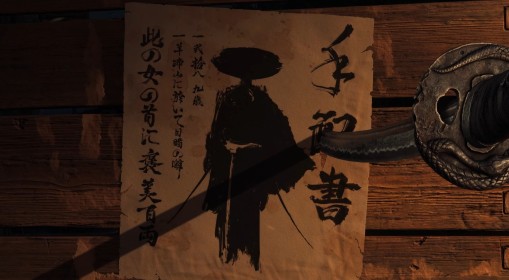 手配書
一代拾八九歳
一羊蹄山に於いて目
此の女の首に褒美百両